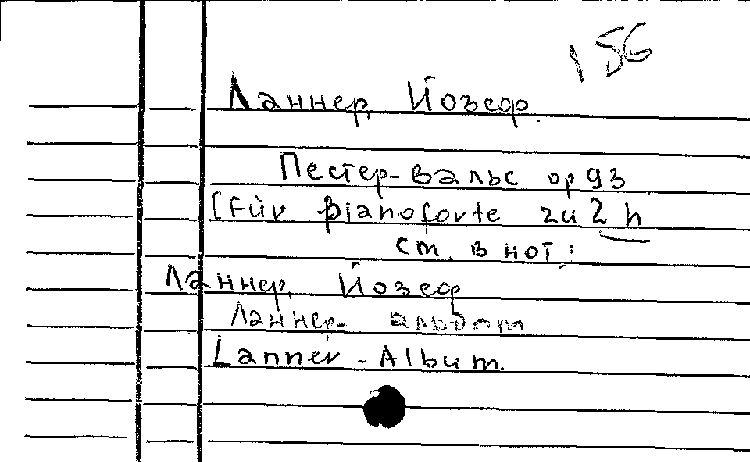 156
Ланнер, Йозеф.
Пестер-вальс ор 93
[Für pianoforte zu 2 h
см. в нот:
Ланнер, Йозеф
Ланнер- альбом
Lanner - Album.